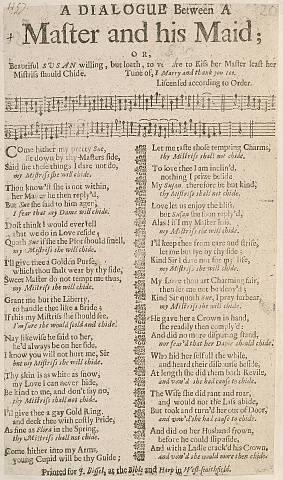 A DIALOGUE Between A
Master and his Maid;
OR,
Beautiful SUSAN willing, but loath, to venture to Kiss her Master least her
Mistriss should Chide. Tune of, I Marry and thank you too.
Licensed according to Order.
Come hither my pretty Sue,
sit down by thy Masters side,
Said she these things I dare not do,
my Mistriss she will chide.
Thou know'st she is not within,
her Master he then reply'd,
But Sue she said to him agen,
I fear that my Dame will chide.
Dost think I would ever tell
that we do in Love reside;
Quoth Sue if she the Plot should smell,
my Mistriss she will chide.
I'll give thee a Golden Purse,
which thou shalt wear by thy side,
Sweet Master do not tempt me thus,
my Mistriss she will chide.
Grant me but the Liberty,
to handle thee like a Bride;
If this my Mistriss she should see,
I'm sure she would scold and chide.
Nay likewise he said to her,
he'd always be on her side,
I know you will not hurt me, Sir
but my Mistriss she will chide.
Thy skin is as white as snow,
my Love I can never hide,
Be kind to me, and don't say no,
thy Mistriss shall not chide.
I'll give thee a gay Gold Ring,
and deck thee with costly Pride,
As fine as Flora in the Spring,
thy Mistriss shall not chide.
Come hither into my Arms,
young Cupid will be thy Guide;
Let me taste those tempting Charms,
thy Mistriss shall not chide.
To love thee I am inclin'd,
nothing I prize beside
My Susan, therefore be but kind,
thy Mistriss shall not chide.
Love let us enjoy the bliss,
but Susan she soon reply'd,
Alas! if I my Master kiss,
my Mistriss she will chide.
I'll keep thee from care and strife,
let me but lye by thy side;
Kind Sir I dare not for my life,
my Mistriss she will chide.
My Love thou art Charming fair,
then let me not be deny'd;
Kind Sir quoth Sue, I pray forbear,
my Mistriss she will chide.
He gave her a Crown in hand,
she readily then comply'd;
And did no more disputing stand,
nor fear'd that her Dame should chide.
Who hid her self all the while,
and heard their discourse beside,
At length she did them both Revile,
and vow'd she had cause to chide.
The Wife she did rant and roar,
and would not the Lass abide,
But took and turn'd her out of Door,
and vow'd she had cause to chide.
And did on her Husband frown,
before he could slip aside,
And with a Ladle crack'd his Crown,
and vow'd she would more then chide.
Printed for J. Bissel, at the Bible and Harp in West-smithfield.